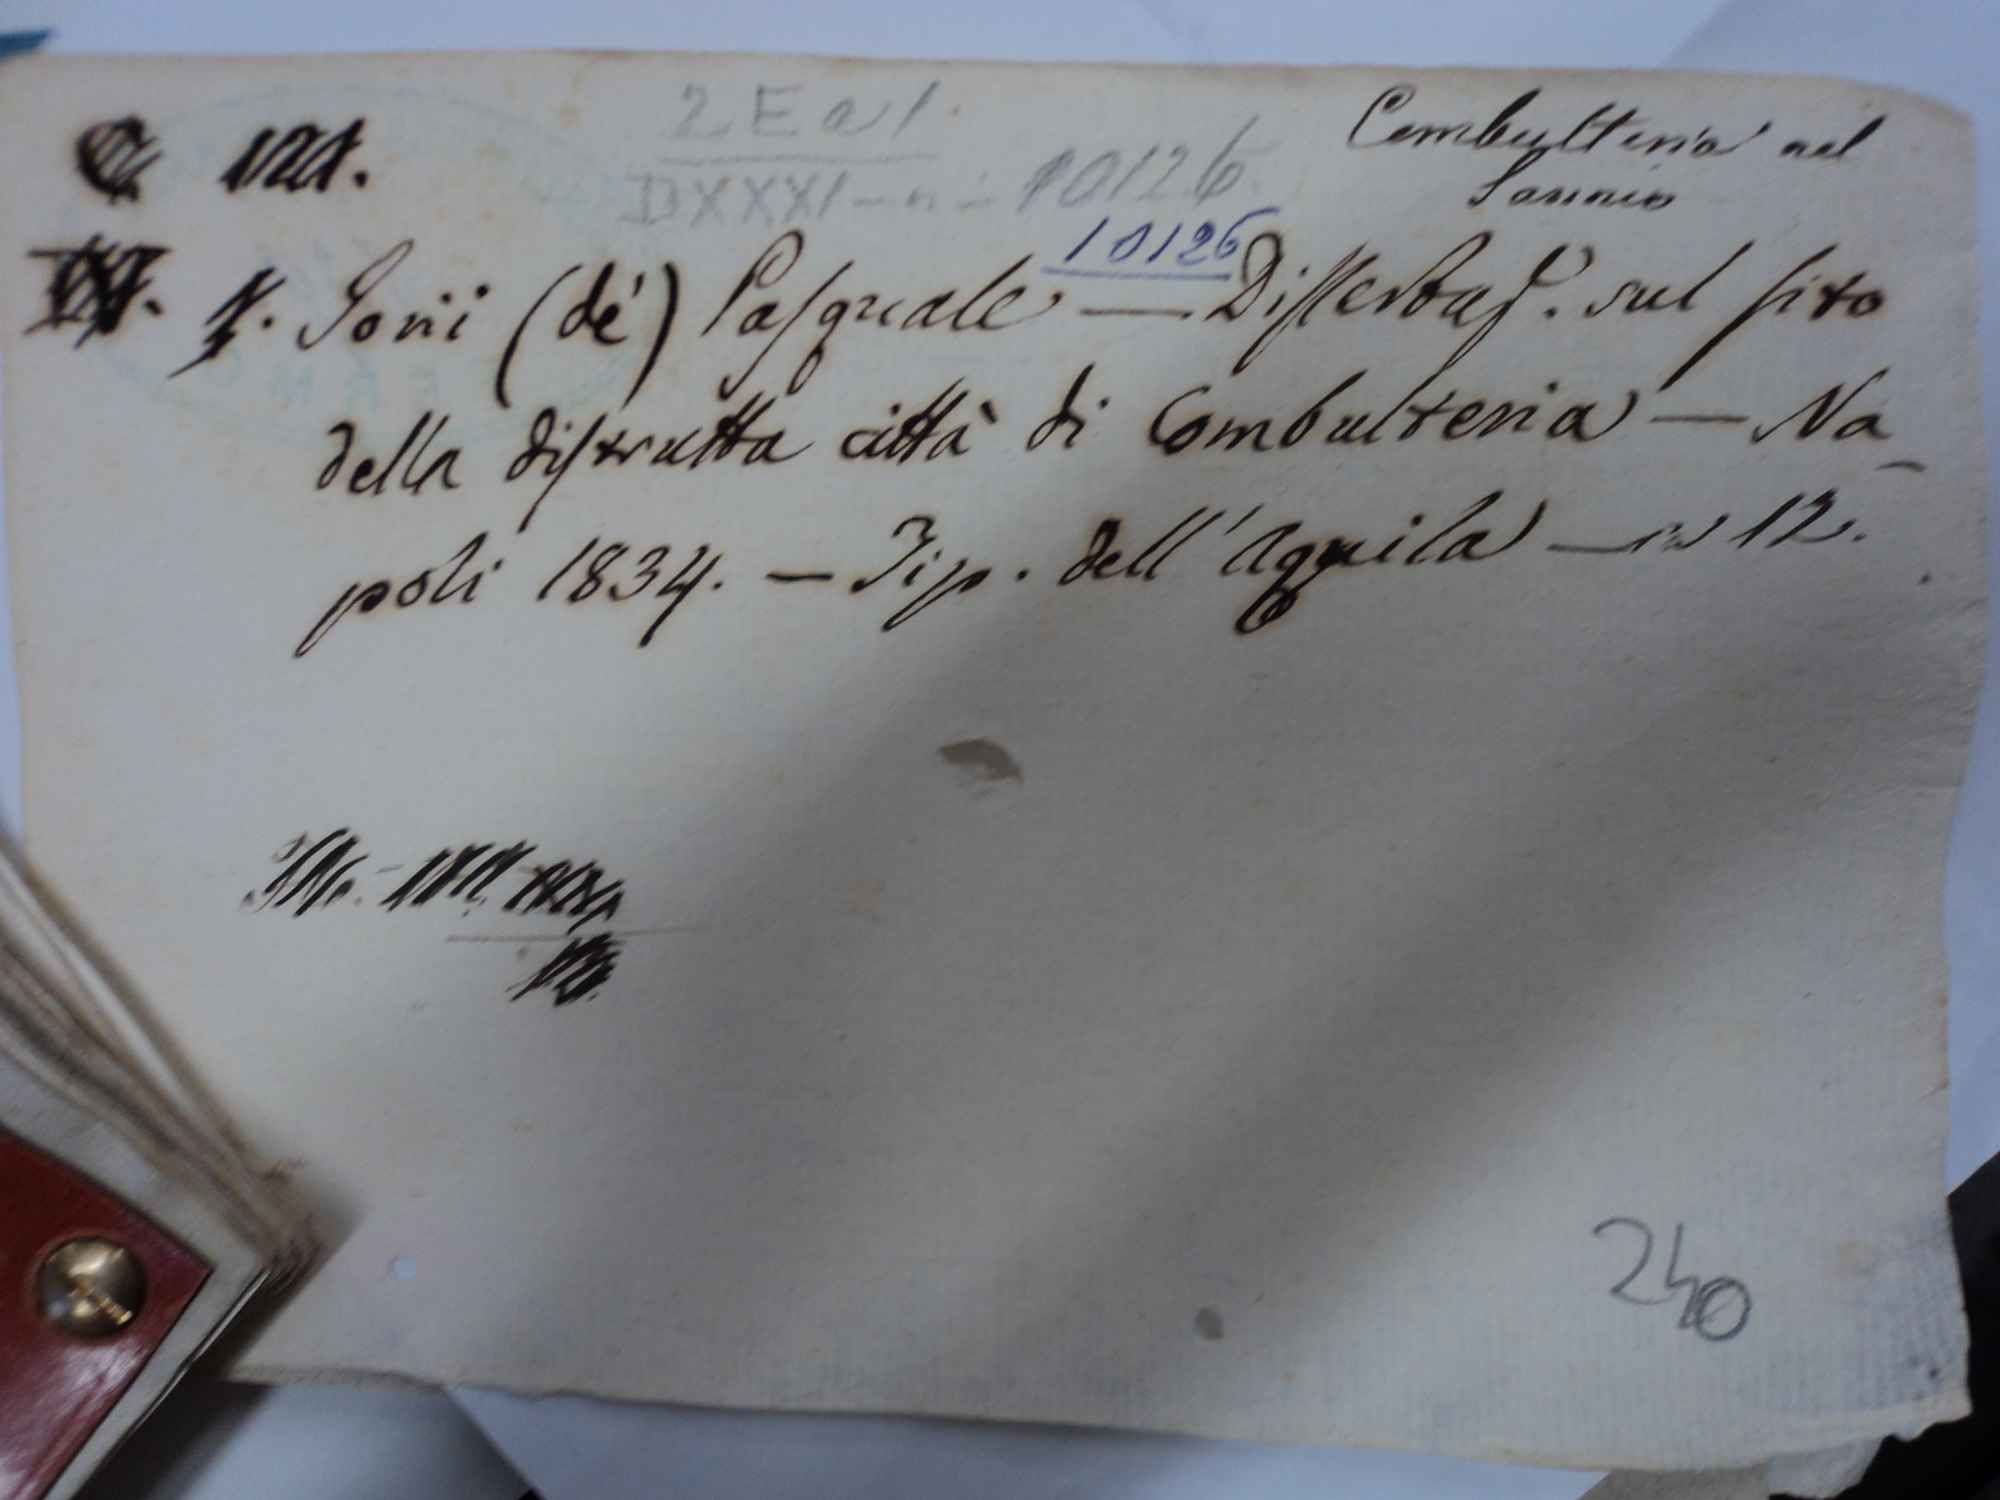 2 E a 1
Combulteria nel
Sannio
DXXXI - n - 10126
10126
Jorii (dé) Pasquale — Dissertaz. sul sito
della distrutta città di Combulteria — Na-
poli 1834. — Tip. dell'Aquila — in 12.
240